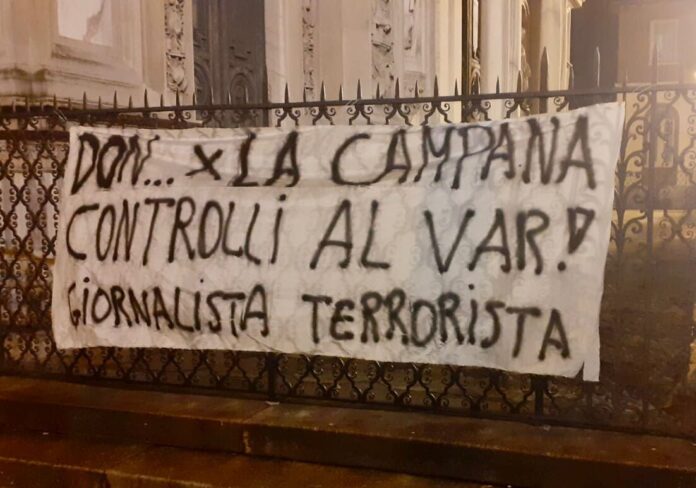 DON... x LA CAMPANA
CONTROLLI AL VAR!
GIORNALISTA TERRORISTA